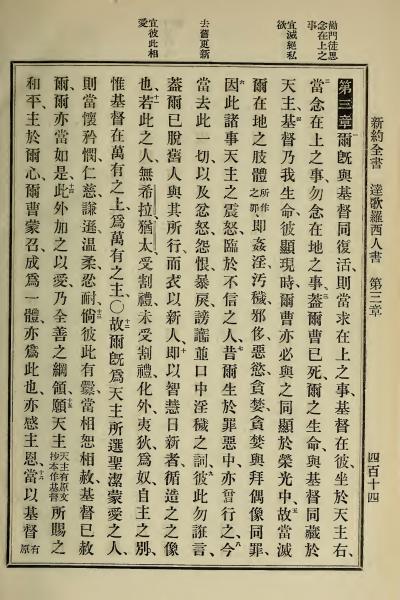 新約全書　達歌羅西人書　第三章
四百十四
勗門徒思
念在上之
事
宜滅絕私
欲
去舊更新
宜彼此相
愛
第三章一爾旣與基督同復活、則當求在上之事、基督在彼、坐於天主右、
二當念在上之事、勿念在地之事、三蓋爾曹已死、爾之生命與基督同藏於
天主、四基督乃我生命、彼顯現時、爾曹亦必與之同顯於榮光中、五故當滅
爾在地之肢體所作之罪、卽姦淫、汚穢、邪侈、惡慾、貪婪、貪婪與拜偶像同罪、
六因此諸事、天主之震怒臨於不信之人、七昔爾生於罪惡中、亦嘗行之、八今
當去此一切、以及忿怒、怨恨、暴戾、謗讟、並口中淫穢之詞、九彼此勿誑言、
蓋爾已脫舊人與其所行、而衣以新人、十卽以智慧日新者、循造之之像
也、十一若此之人、無希拉猶太、受割禮未受割禮、化外夷狄、爲奴自主之別、
惟基督在萬有之上、爲萬有之主、○十二故爾旣爲天主所選、聖潔蒙愛之人、
則當懷矜憫、仁慈、謙遜、溫柔、忍耐、十三倘彼此有釁、當相恕相赦、基督已赦
爾、爾亦當如是、十四此外加之以愛、乃全善之綱領、十五願天主天主有原文抄本作基督所賜之
和平、主於爾心、爾曹蒙召成爲一體、亦爲此也、亦感主恩、十六當以基督原有